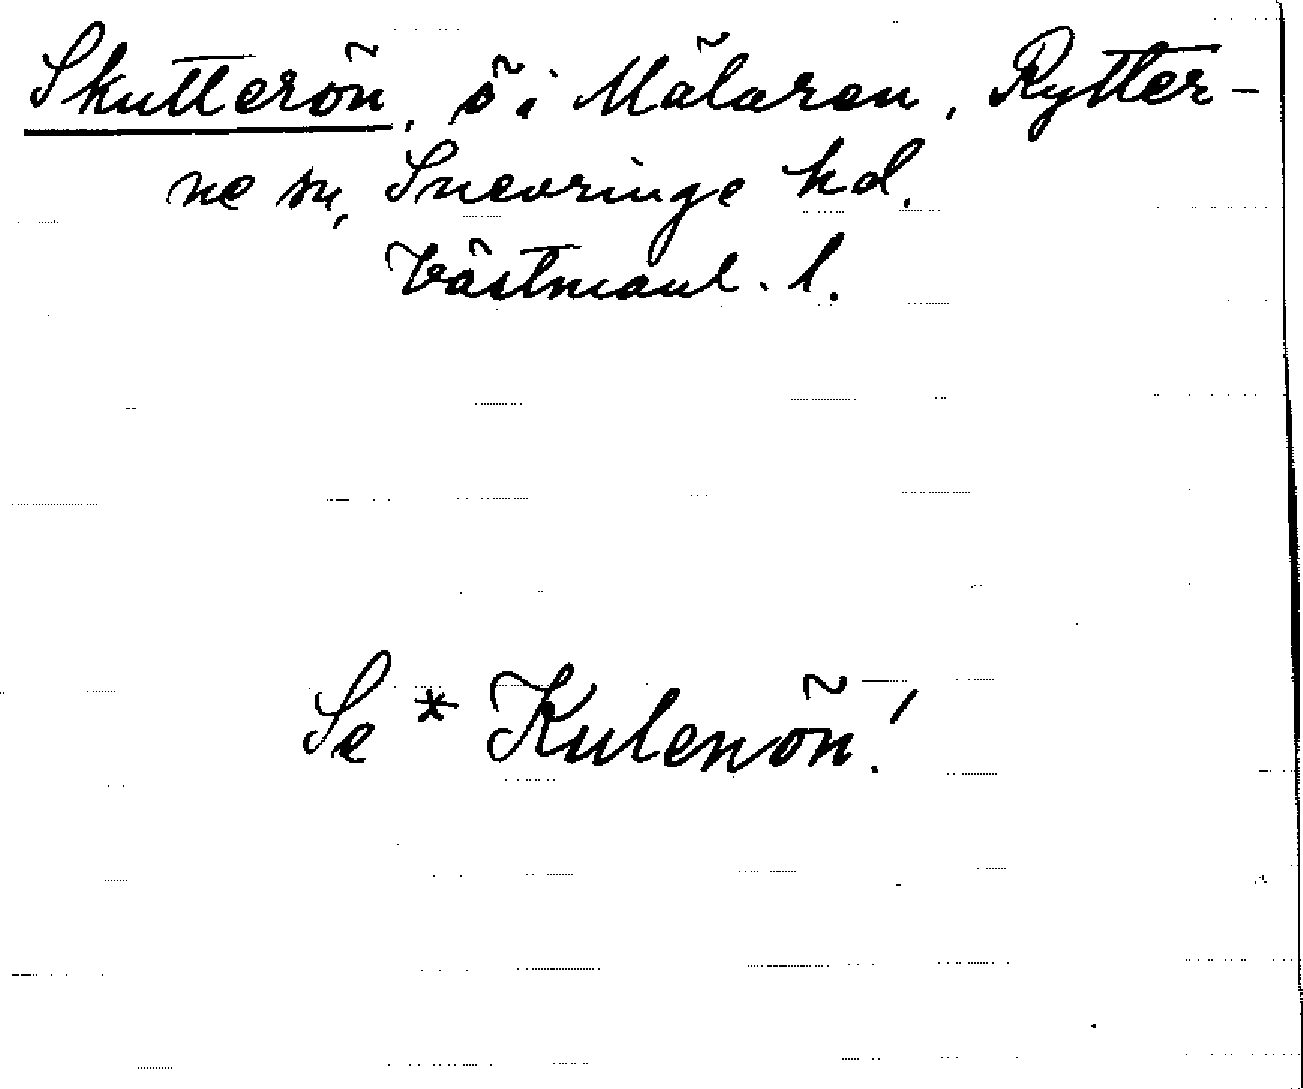 Skutterön, ö i Mälaren, Rytter-
ne sn, Snevringe hd.
Västmanl. l.
Se * Kulenön!